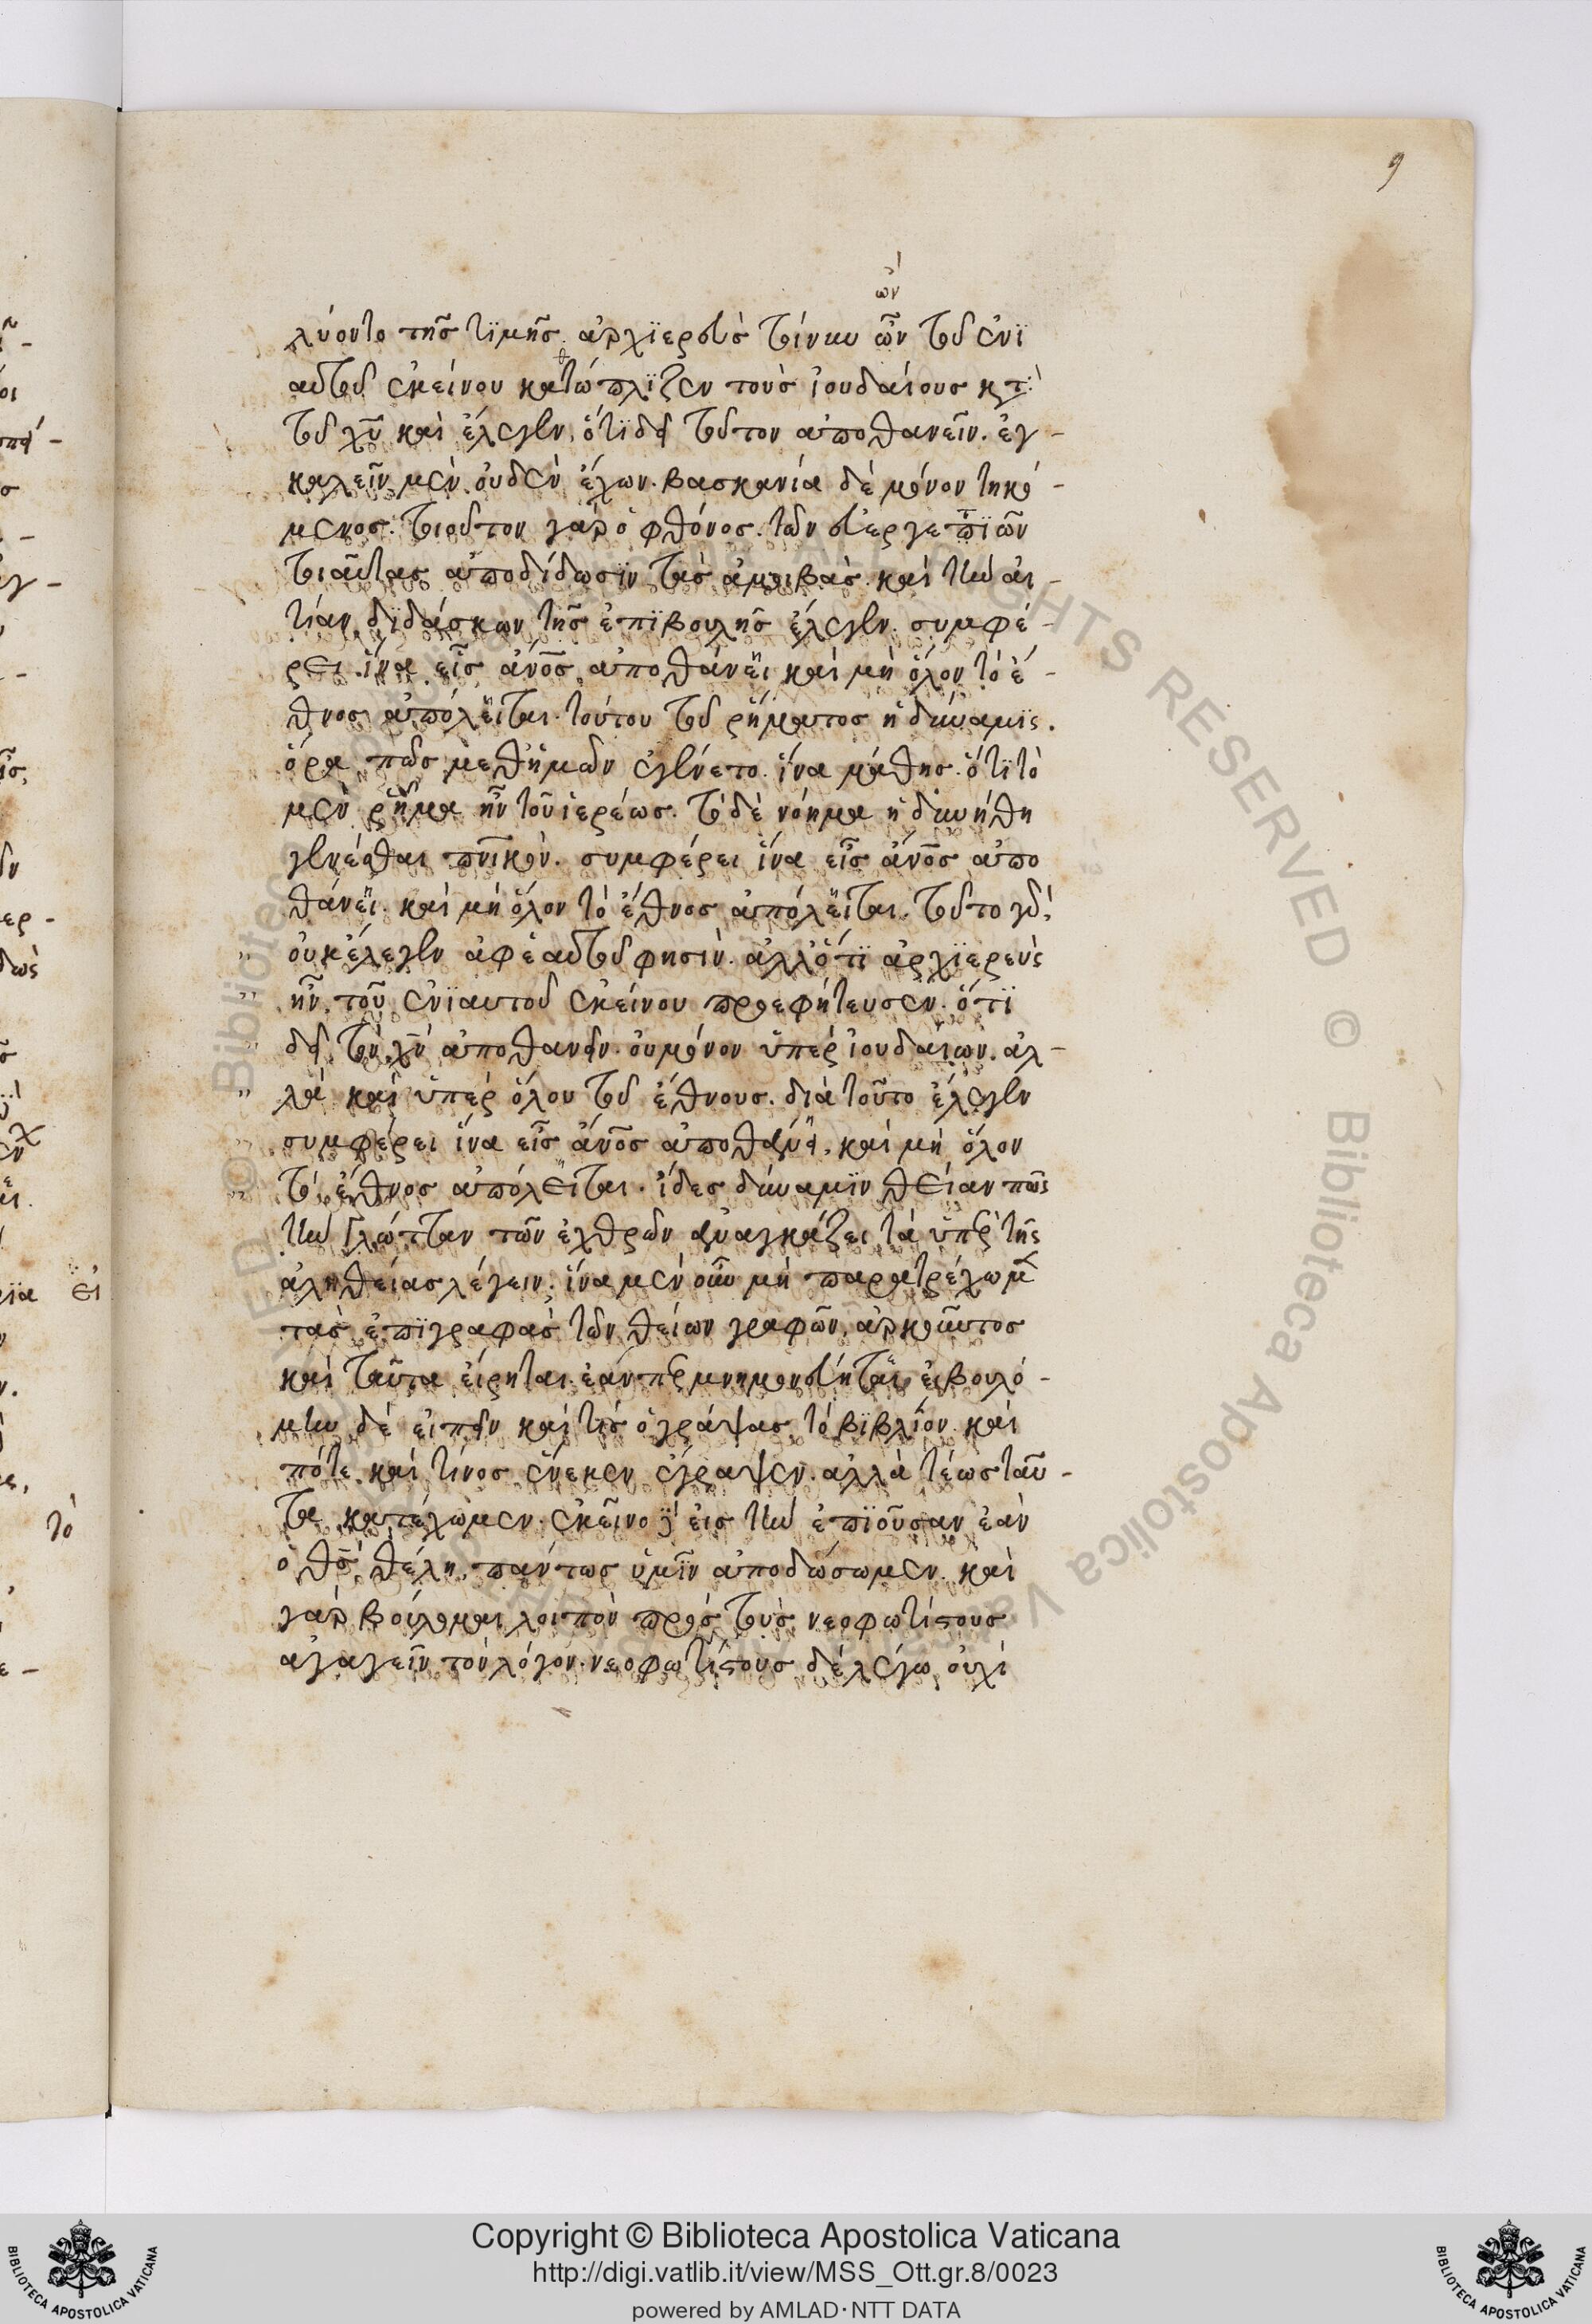 9
ὤν
λύοντο τῆς τϊμῆς. ἀρχϊερεὺς τοίνυν ὢν τοῦ ἐνϊ
αυτοῦ ἐκείνου καθώπλϊζεν τοὺς ἰουδαίους κτ̀
τοῦ χ̅υ̅ καὶ ἔλεγεν, ὅτϊ δεῖ τοῦτον ἀποθανεῖν. ἐγ-
καλεῖν μὲν οὐδὲν ἔχων. βασκανία δὲ μόνον τηκό-
μενος. τοιοῦτον γὰρ ὁ φθόνος. τῶν εὐεργετϊῶν
τοιαύτας ἀποδίδωσϊν τὰς ἀμοιβάς. καὶ τὴν αἰ-
τίαν διδάσκων τῆς ἐπϊβουλῆς ἔλεγεν. συμφέ-
ρει. ἵνα εἷς ἄν̅ο̅ς ἀποθάνει καὶ μὴ ὅλον τὸ ἔ-
θνος ἀπόλειται. τούτου τοῦ ῥήματος ἡ δύναμϊς.
ὅρα πῶς μεθἡμῶν ἐγένετο. ἵνα μάθης. ὅτϊ τὸ
μὲν ῥῆμα ἦν τοῦ ἱερέως. τὸ δὲ νόημα ἠδυνήθη
γενέσθαι πν̅ικόν. συμφέρει ἵνα εἷς ἄν̅ο̅ς ἀπο
θάνει. καὶ μὴ ὅλον τὸ ἔθνος ἀπόλειται. τοῦτο γὰρ
οὐκ ἔλεγεν ἀφ ἑαυτοῦ φησιν. ἀλλ ὅτϊ ἀρχϊερεὺς
ἦν τοῦ ἐνϊαυτοῦ ἐκείνου προεφήτευσεν. ὅτϊ
δεῖ τὸν χ̅ν̅ ἀποθανεῖν. οὐ μόνον ὑπὲρ ἰουδαιων. ἀλ-
λὰ καὶ ὑπὲρ ὅλου τοῦ ἔθνους. διὰ τοῦτο ἔλεγεν
συμφέρει ἵνα εἷς ἄν̅ο̅ς ἀποθάνῃ, καὶ μὴ ὅλον
τὸ ἔθνος ἀπόλειται. ἴδες δύναμϊν θείαν πῶς
τὴν γλῶτταν τῶν ἐχθρῶν ἀναγκάζει τὰ ὑπὲρ τῆς
ἀληθείας λέγειν. ἵνα μὲν οὖν μὴ παρατρέχωμ̅
τὰς ἐπϊγραφὰς τῶν θείων γραφῶν, ἀρκούντος
καὶ ταῦτα εἴρηται. ἐάνπερ μνημονεύηται. ἐβουλό-
μην δὲ εἰπεῖν καὶ τὶς ὁ γράψας τὸ βϊβλίον. καὶ
πότε. καὶ τίνος ἕνεκεν ἔγραψεν. ἀλλὰ τέως ταῦ-
τα κατέχωμεν. ἐκεῖνο εἰς τὴν ἐπϊοῦσαν ἐὰν
ὁ θ̅ς̅ θέλη, πάντως ὑμῖν ἀποδώσωμεν. καὶ
γὰρ βούλομαι λοιπὸν πρὸς τοὺς νεοφωτίστους
ἀγαγεῖν τὸν λόγον. νεοφωτίστους δὲ λέγω οὐχὶ
Copyright © Biblioteca Apostolica Vaticana
http://digi.vatlib.it/view/MSS_Ott.gr.8/0023
powered by AMLAD·NTT DATA